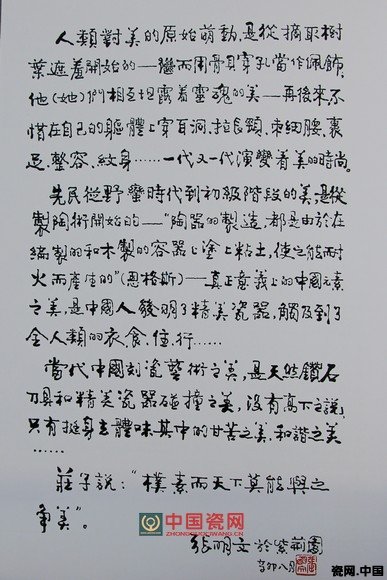 人類對美的原始萌動,是從摘取樹
葉遮羞開始的——繼而用骨貝穿孔當作佩飾,
他(她)們相互坦露着靈魂的美——再後來,不
惜在自己的軀體上穿耳洞、拉長頸、束細腰、裹
足、整容、紋身……一代又一代演變着美的時尚。
先民從野蠻時代到初級階段的美,是從
製陶術開始的——“陶器的製造,都是由於在
編製的和木製的容器上塗上粘土,使之能耐
火而產生的”(恩格斯)——真正意義上的中國元素
之美,是中國人發明了精美瓷器,觸及到了
全人類的衣食、住、行……
當代中國刻瓷藝術之美,是天然鑽石
刀具和精美瓷器碰撞之美,沒有高下之說,
只有挺身去體味其中的甘苦之美、和諧之美
……
莊子說:“樸素而天下莫能與之
爭美”。
張明文於紫荊園
辛卯八月
中国瓷网
ZHONGGUOCIWANG.COM
瓷网.中国